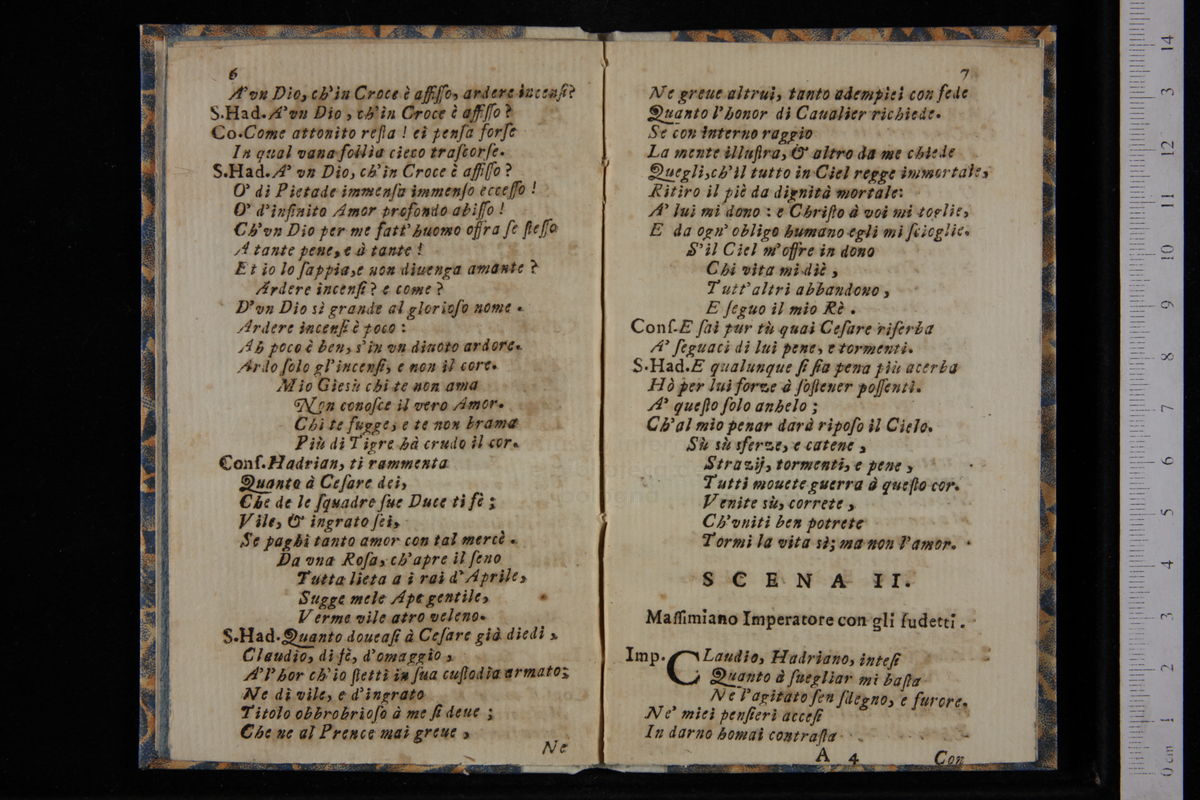 6
A' vn Dio, ch'in Croce è affiſſo, ardere incenſi?
S.Had. A' vn Dio, ch'in Croce è affiſſo?
Co. Come attonito reſta! ei penſa forſe
In qual vana follia cieco traſcorſe.
S.Had. A' vn Dio, ch'in Croce è affiſſo?
O' di Pietade immenſa immenſo ecceſſo!
O' d'infinito Amor profondo abiſſo!
Ch'vn Dio per me fatt'huomo offra ſe ſteſſo
A tante pene, e à tante!
Et io lo ſappia, e non diuenga amante?
Ardere incenſi? e come?
D'vn Dio sì grande al glorioſo nome.
Ardere incenſi è poco:
Ah poco è ben, s'in vn diuoto ardore.
Ardo ſolo gl'incenſi, e non il core.
Mio Giesù chi te non ama
Non conoſce il vero Amor.
Chi te fugge, e te non brama
Più di Tigre hà crudo il cor.
Conſ. Hadrian, ti rammenta
Quanto à Ceſare dei,
Che de le ſquadre ſue Duce ti fè;
Vile, & ingrato ſei,
Se paghi tanto amor con tal mercè.
Da vna Roſa, ch'apre il ſeno
Tutta lieta a i rai d'Aprile,
Sugge mele Ape gentile,
Verme vile atro veleno.
S.Had. Quanto doueaſi à Ceſare già diedi,
Claudio, di fè, d'omaggio,
A l'hor ch'io ſtetti in ſua cuſtodia armato;
Ne di vile, e d'ingrato
Titolo obbrobrioſo à me ſi deue;
Che ne al Prence mai greue,
Ne
7
Ne greue altrui, tanto adempiei con fede
Quanto l'honor di Caualier richiede.
Se con interno raggio
La mente illuſtra, & altro da me chiede
Quegli, ch'il tutto in Ciel regge immortale,
Ritiro il piè da dignità mortale:
A' lui mi dono: e Chriſto à voi mi toglie,
E da ogn' obligo humano egli mi ſcioglie.
S'il Ciel m'offre in dono
Chi vita mi diè,
Tutt'altri abbandono,
E ſeguo il mio Rè.
Conſ. E ſai pur tù quai Ceſare riſerba
A' ſeguaci di lui pene, e tormenti.
S.Had. E qualunque ſi ſia pena più acerba
Hò per lui forze à ſoſtener poſſenti.
A' queſto ſolo anhelo;
Ch'al mio penar darà ripoſo il Cielo.
Sù sù sferze, e catene,
Strazij, tormenti, e pene,
Tutti mouete guerra à queſto cor.
Venite sù, correte,
Ch'vniti ben potrete
Tormi la vita sì; ma non l'amor.
SCENA II.
Maſſimiano Imperatore con gli ſudetti.
Imp. CLaudio, Hadriano, inteſi
Quanto à ſuegliar mi baſta
Ne l'agitato ſen ſdegno, e furore.
Ne' miei penſieri acceſi
In darno homai contraſta
A 4
Con
14
3
12
11
10
9
8
7
6
5
4
3
2
1
0 cm